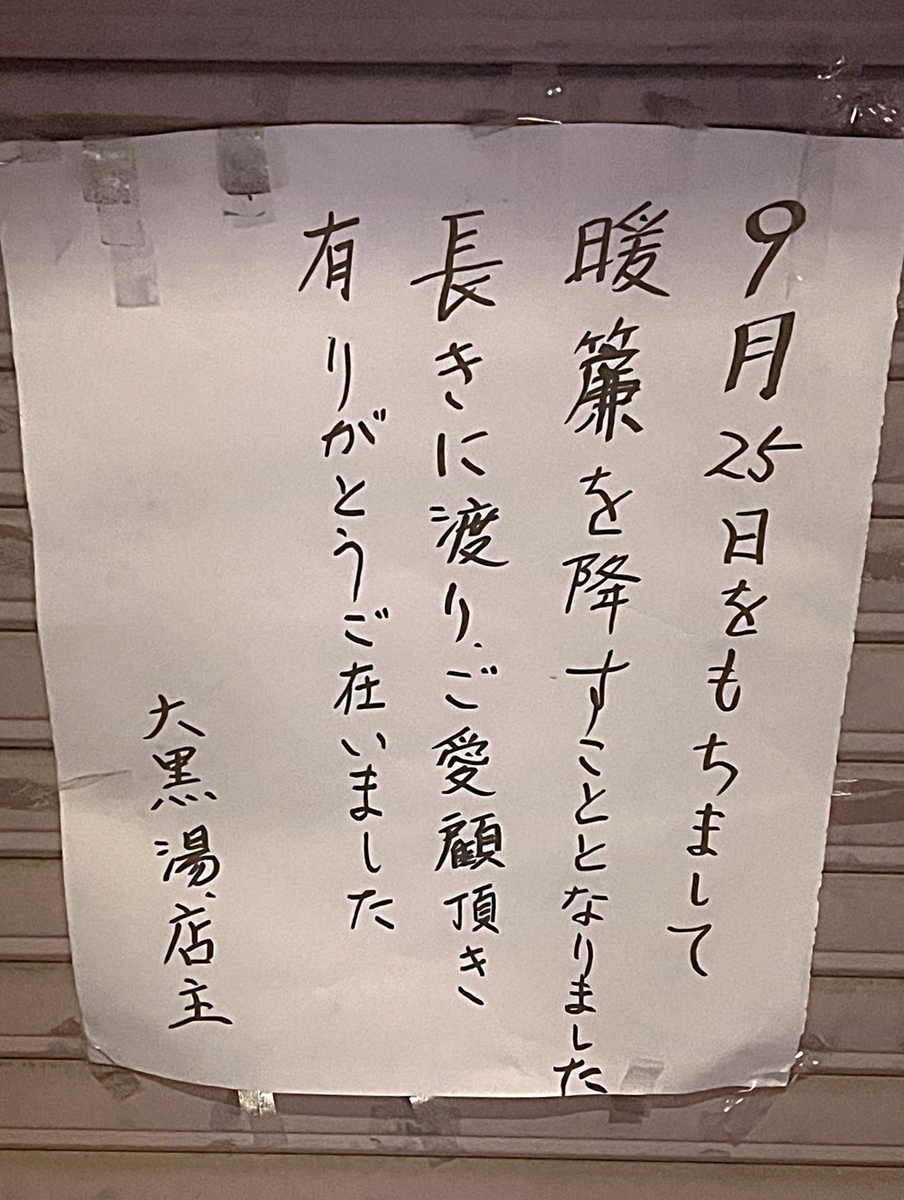 9月25日をもちまして
暖簾を降すこととなりました
長きに渡り、ご愛顧頂き
有りがとうご在いました
大黒湯、店主